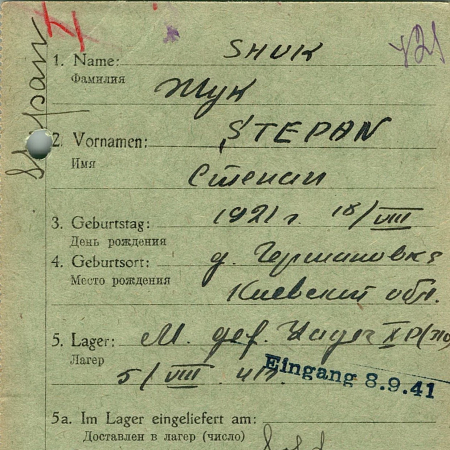 421
1. Name: SHUK
Фамилия Жук
2. Vornamen: STEPAN
Имя Степан
3. Geburtstag: 1921 г. 18/VIII
День рождения
4. Geburtsort: д. Германовка
Место рождения Киевской обл.
5. Lager: M.
Лагер 5/VIII 41
Eingang 8.9.41
5a. Im Lager eingeliefert am:
Доставлен в лагер (число)